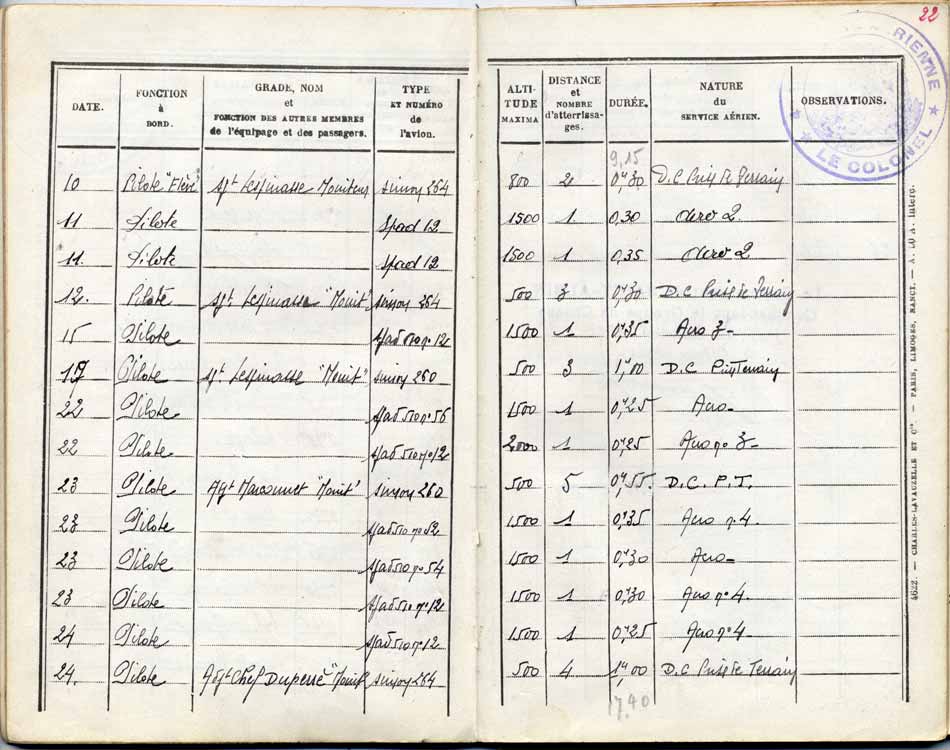 22
RIENNE
★ LE COLONEL ★
DATE.
FONCTION
à
BORD.
GRADE, NOM
et
FONCTION DES AUTRES MEMBRES
de l'équipage et des passagers.
TYPE
ET NUMÉRO
de
l'avion.
ALTI-
TUDE
MAXIMA
DISTANCE
et
NOMBRE
d'atterrissa-
ges.
DURÉE.
NATURE
du
SERVICE AÉRIEN.
OBSERVATIONS.
9,15
10 Pilote "Elève" Sgt Lespinasse Moniteur Simoy 264 800 2 0,30 D.C Prise de Terrain
11 Pilote Spad 12 1500 1 0,30 Acro 2
11 Pilote Spad 12 1500 1 0,35 Acro 2
12. Pilote Sgt Lespinasse "Monit" Simoy 264 500 3 0,30 D.C Prise de Terrain
15 Pilote Spad 510 n° 12 1500 1 0,35 Acro 3
Pilote Sgt Lespinasse "Monit" Simoy 260 500 3 1,00 D.C
22 Pilote Spad 510 n° 56 1500 1 0,25 Acro
22 Pilote Spad 510 n° 12 2000 1 0,25 Acro n° 3
23 Pilote "Monit" Simoy 260 500 5 0,55. D.C. P.T.
23 Pilote Spad 510 n° 52 1500 1 0,35 Acro n° 4.
23 Pilote Spad 510 n° 54 1500 1 0,30 Acro
23 Pilote Spad 510 n° 12 1500 1 0,30 Acro n° 4.
24 Pilote Spad 510 n° 12 1500 1 0,25 Acro n° 4
24. Pilote Adjt Chef Duperré "Monit" Simoy 264 500 4 1,00 D.C Prise de Terrain
17,40
4622. — CHARLES-LAVAUZELLE ET Cie. — PARIS, LIMOGES, NANCY. — A. 10 A. Intéro.